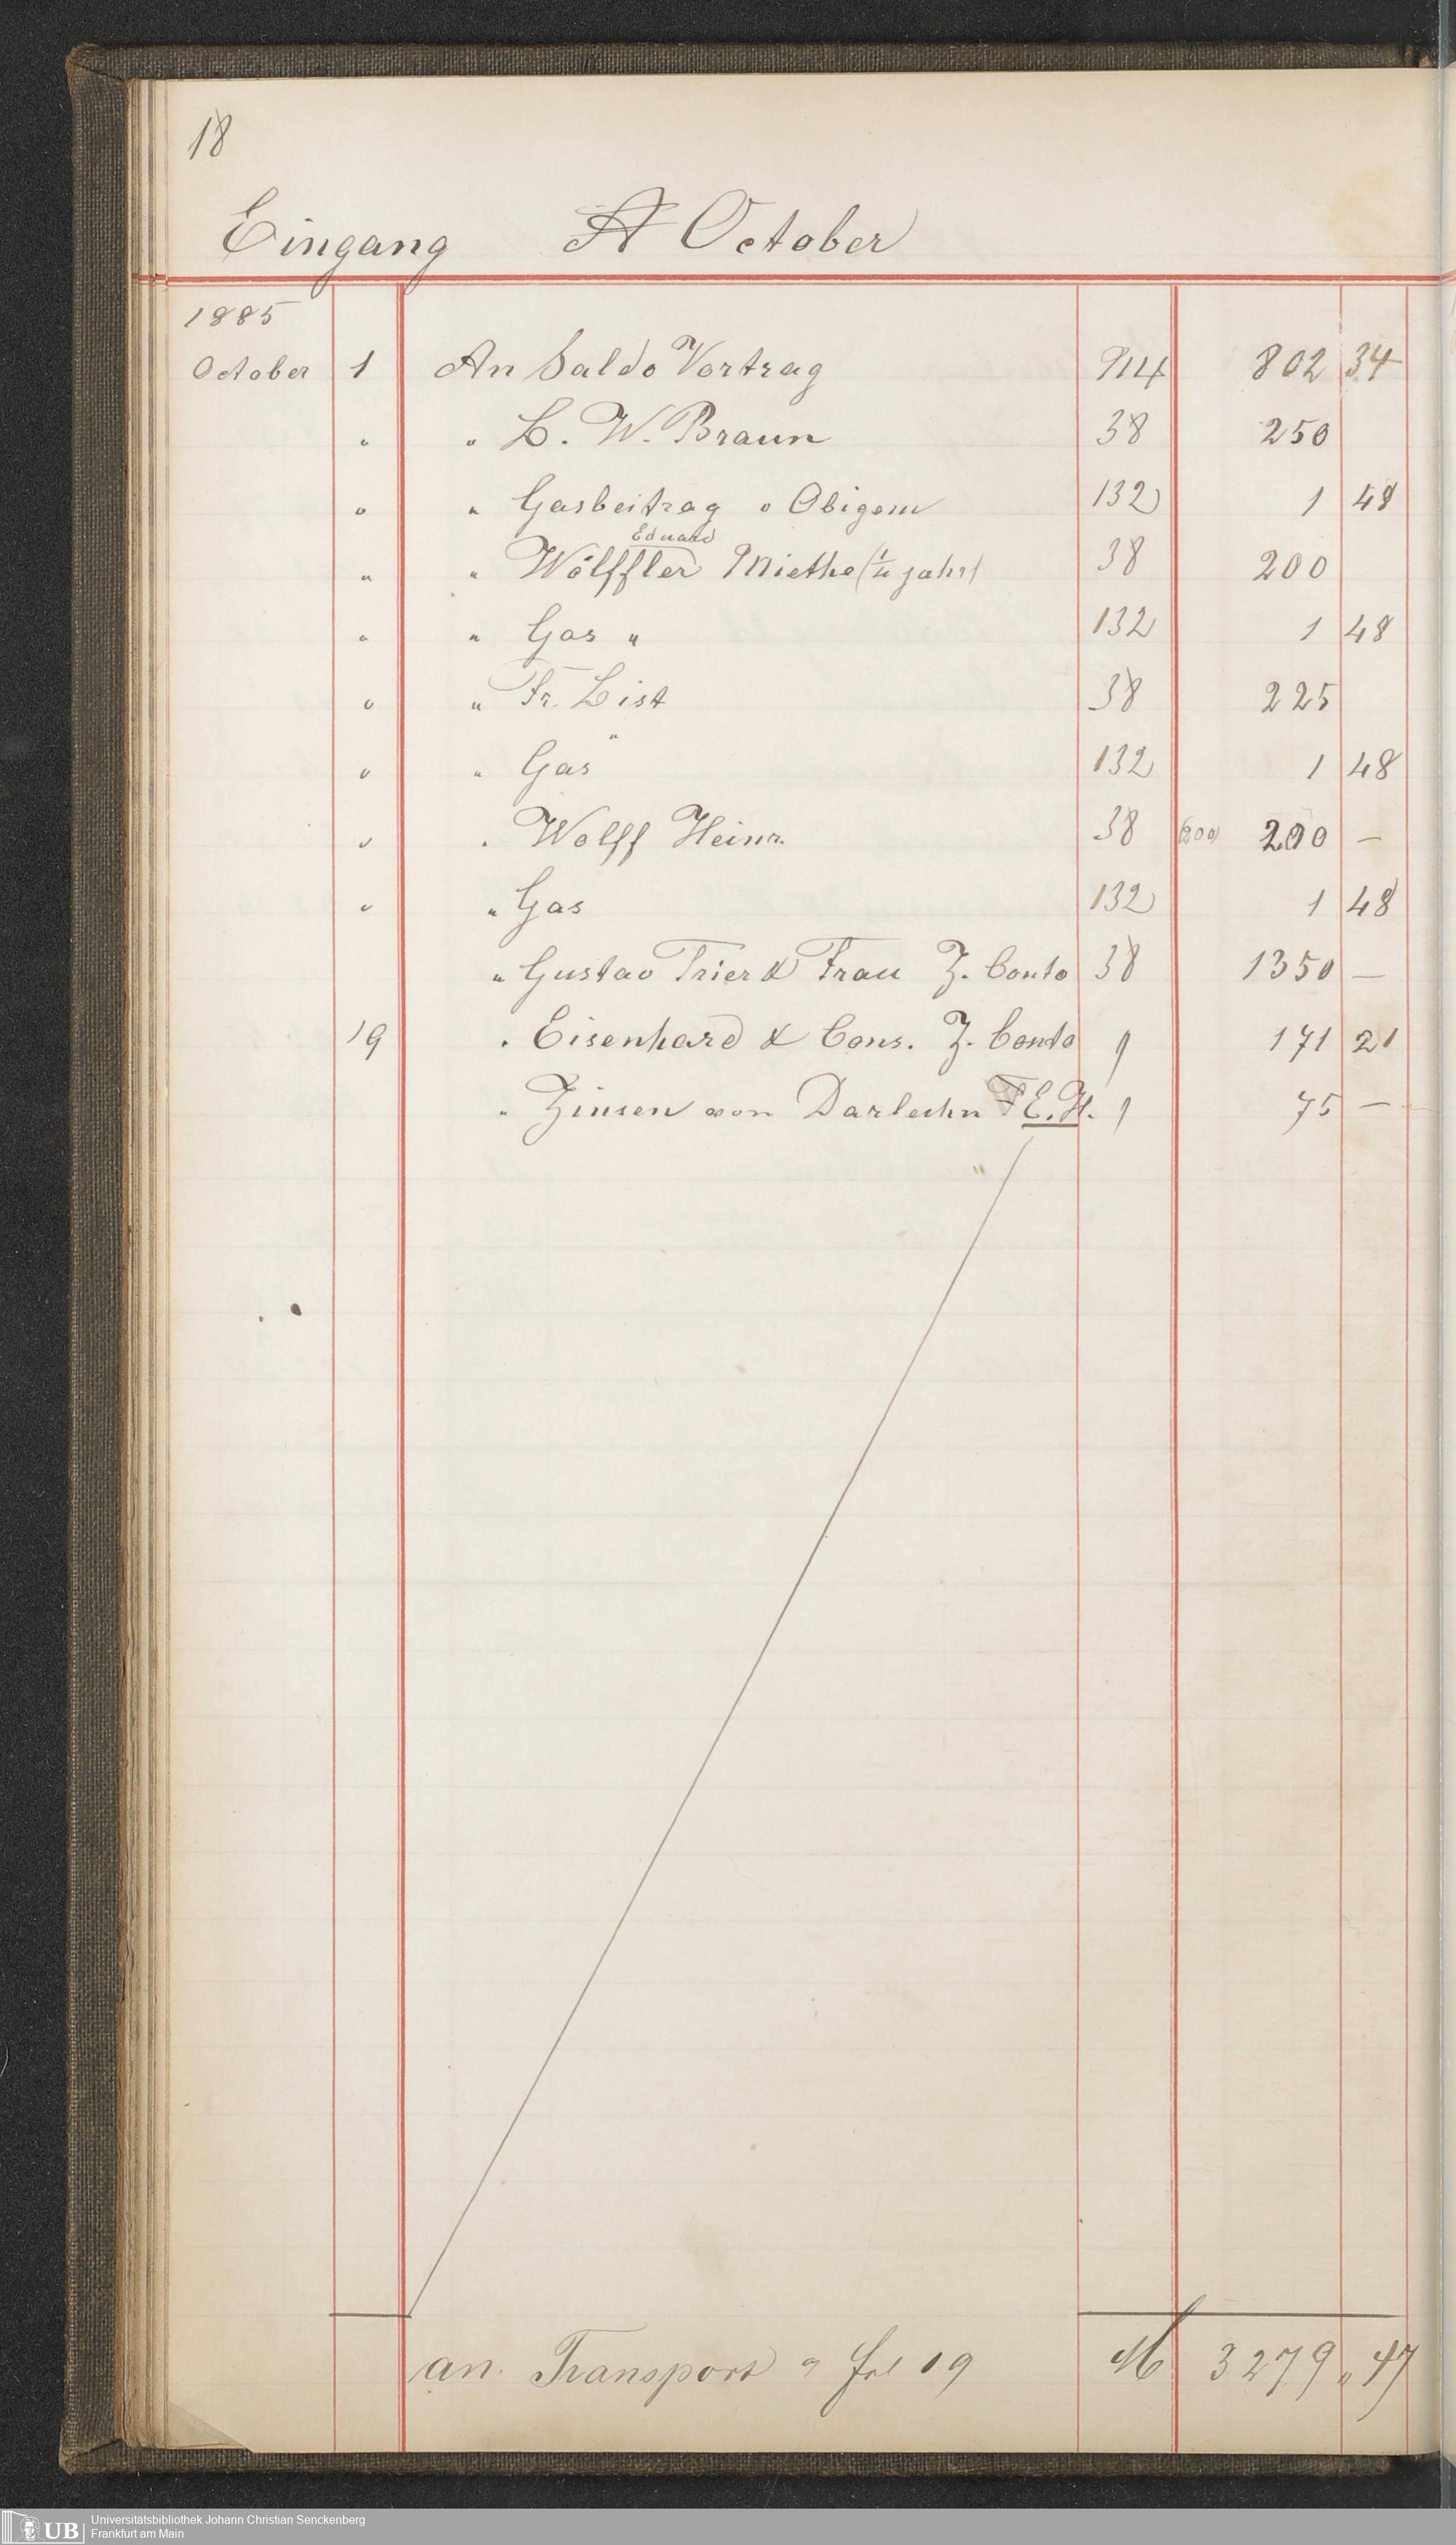 18
Eingang A October
1885
October 1 An Saldo Vortrag 802 34
" " L. W. Braun 38 250
" " Gasbeitrag " Obigem 132 1 48
Eduard
" " Wölffler Miethe (1/4 jahr) 38 200
" " Gas " 132 1 48
" " Fr. List 38 225
" " Gas " 132 1 48
" " Wolff Heinr. 38 (200) 200 —
" " Gas 132 1 48
" Gustav Trier & Frau Z. Conto 38 1350 —
19 " Eisenhard & Cons. Z. Conto 9 171 21
" Zinsen von Darlehn E. H. 9 75 —
an. Transport a fol 19 M 3279 " 47
Universitätsbibliothek Johann Christian Senckenberg
UB Frankfurt am Main